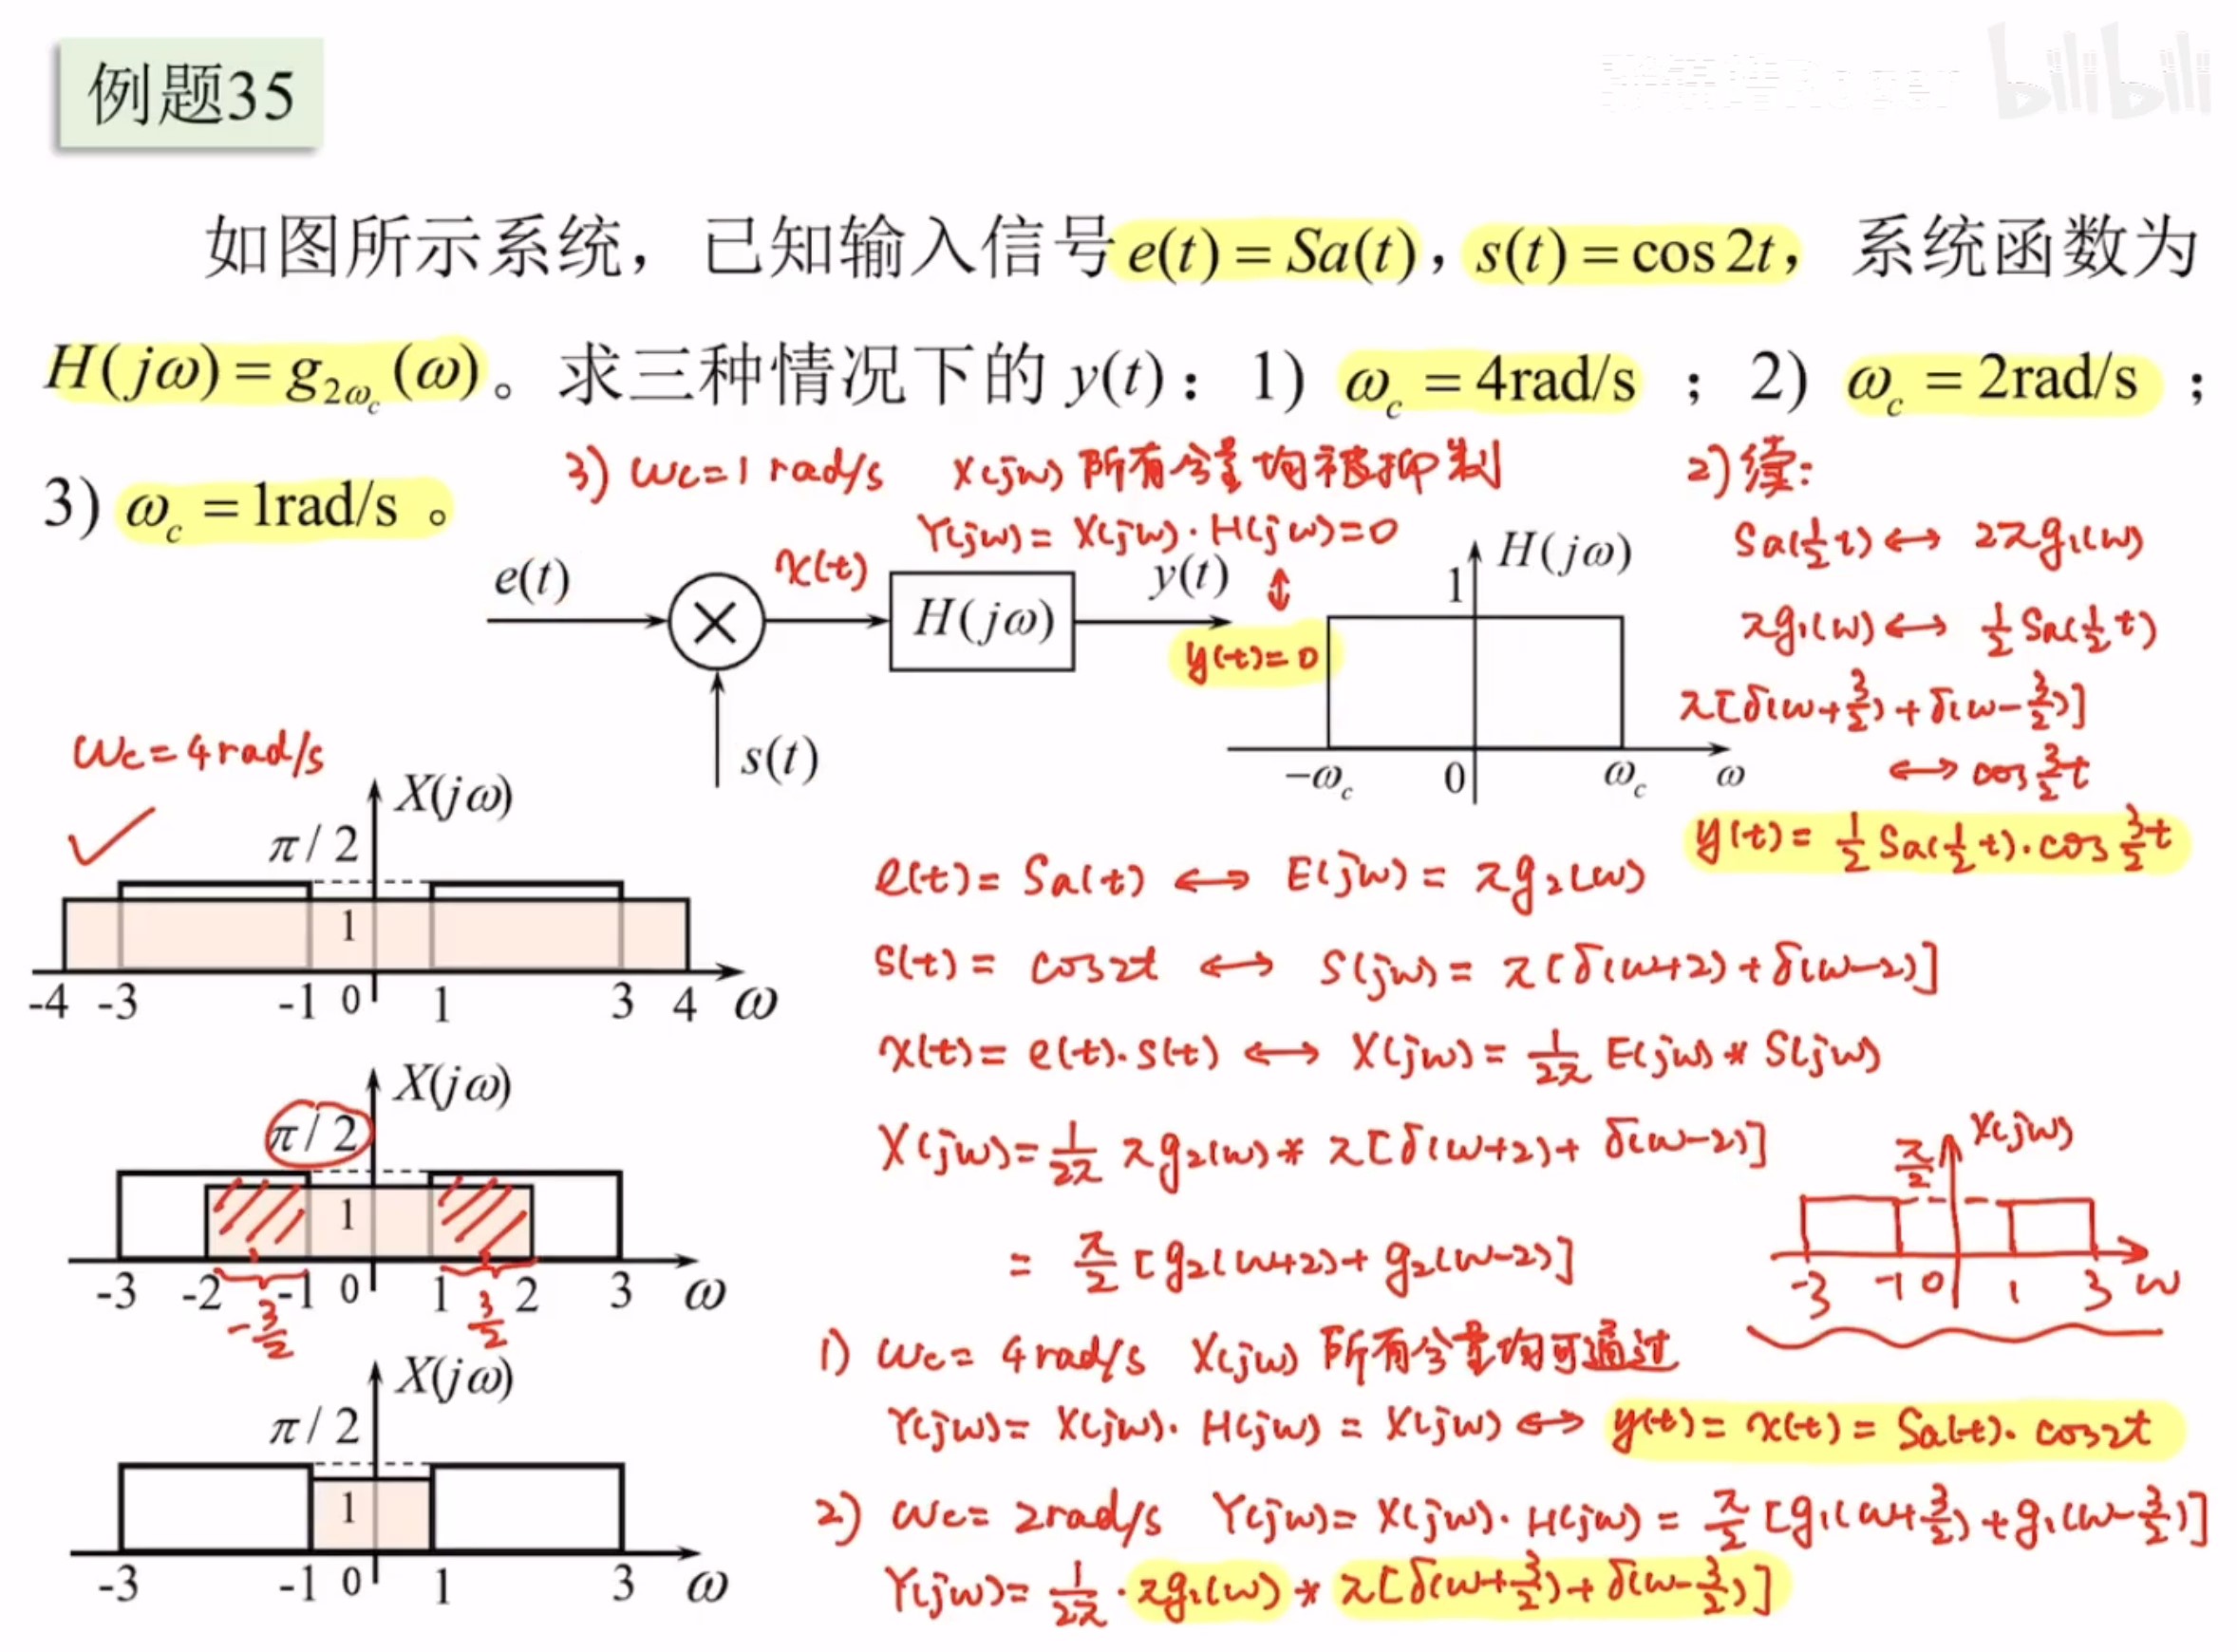 例题35
bilibili
如图所示系统，已知输入信号 e(t) = Sa(t)，s(t) = cos 2t， 系统函数为
H(jω) = g_{2ω_c}(ω)。求三种情况下的 y(t)：1) ω_c = 4rad/s ；2) ω_c = 2rad/s ；
3) ω_c = 1rad/s 。
3) ωc=1 rad/s X(jω) 所有分量均被抑制
Y(jω)= X(jω)·H(jω)=0
↕
y(t)=0
e(t)
x(t)
H(jω)
y(t)
s(t)
H(jω)
1
−ω_c 0 ω_c ω
2)续:
Sa(½t) ↔ 2πg₁(ω)
πg₁(ω) ↔ ½Sa(½t)
π[δ(ω+3/2)+δ(ω−3/2)]
↔ cos 3/2 t
y(t)= ½Sa(½t)·cos 3/2 t
ωc=4rad/s
✓
X(jω)
π/2
1
-4 -3 -1 0 1 3 4 ω
X(jω)
π/2
1
-3 -2 -1 0 1 2 3 ω
−3/2 3/2
X(jω)
π/2
1
-3 -1 0 1 3 ω
e(t)= Sa(t) ↔ E(jω)= πg₂(ω)
s(t)= cos2t ↔ S(jω)= π[δ(ω+2)+δ(ω−2)]
x(t)= e(t)·s(t) ↔ X(jω)= 1/2π E(jω)*S(jω)
X(jω)= 1/2π πg₂(ω)* π[δ(ω+2)+ δ(ω−2)]
= π/2 [g₂(ω+2)+ g₂(ω−2)]
X(jω)
π/2
-3 -1 0 1 3 ω
1) ωc= 4rad/s X(jω) 所有分量均可通过
Y(jω)= X(jω)·H(jω) = X(jω) ↔ y(t)= x(t)= Sa(t)·cos2t
2) ωc= 2rad/s Y(jω)= X(jω)·H(jω)= π/2 [g₁(ω+3/2)+g₁(ω−3/2)]
Y(jω)= 1/2π · πg₁(ω) * π[δ(ω+3/2)+δ(ω−3/2)]